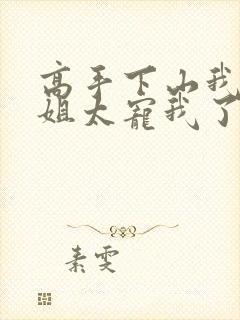 高手下山我
姐太宠我了
素雯